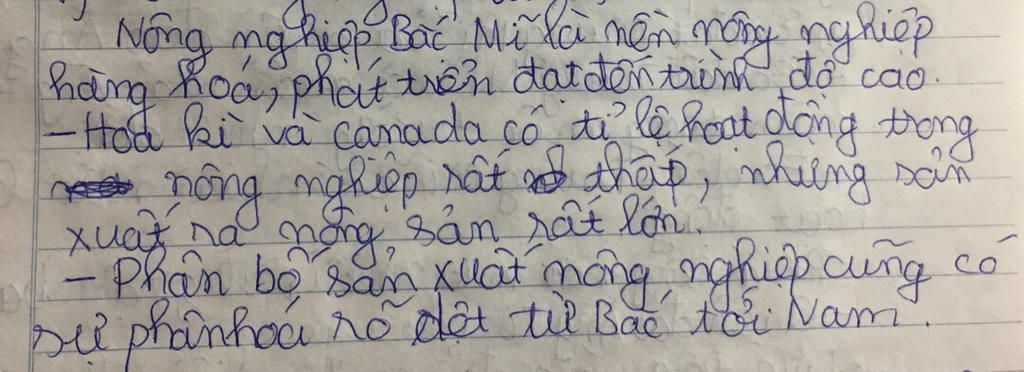 Nông nghiệp Bắc Mĩ là nền nông nghiệp
hàng hoá, phát triển đạt đến trình độ cao.
- Hoa kì và canada có tỉ lệ hoạt động trong
nông nghiệp rất thấp, nhưng sản
xuất ra nông sản rất lớn.
- Phân bố sản xuất nông nghiệp cũng có
sự phân hoá rõ dệt từ Bắc tới Nam.